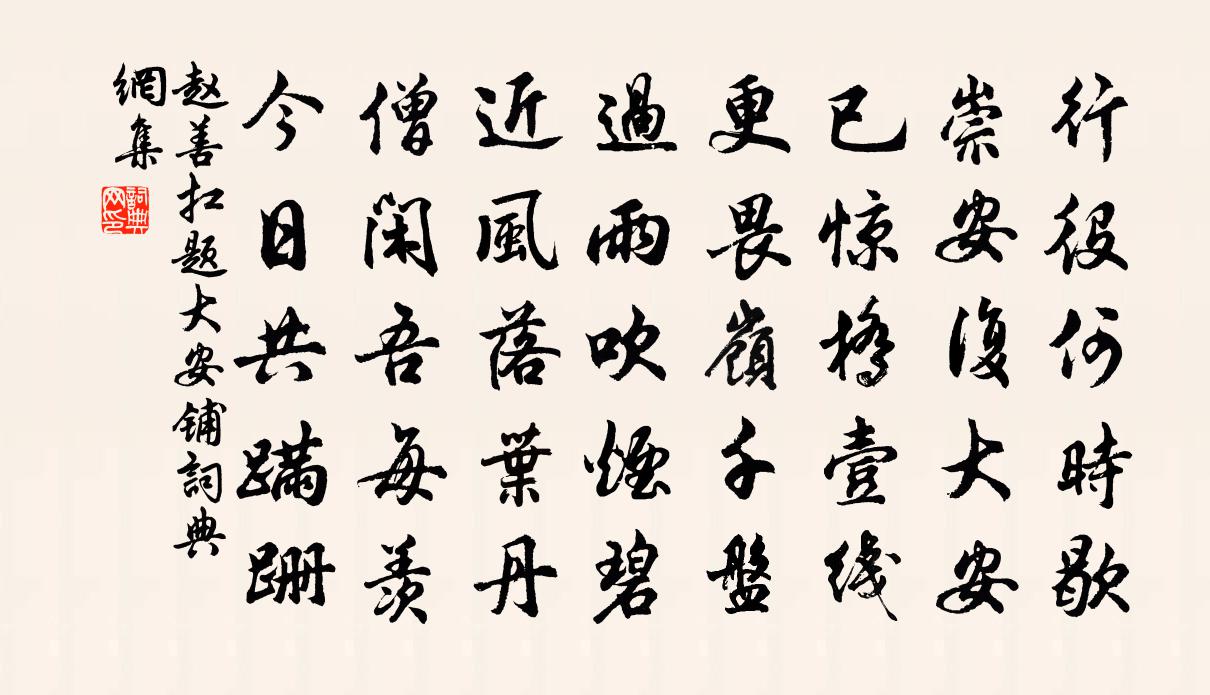 行役何時歇
崇安復大安
已惊橋壹线
更畏嶺千盤
過雨吹煙碧
近風落葉丹
僧閑吾每羨
今日共蹣跚
赵善扛题大安铺詞典
網集
詞典
网印